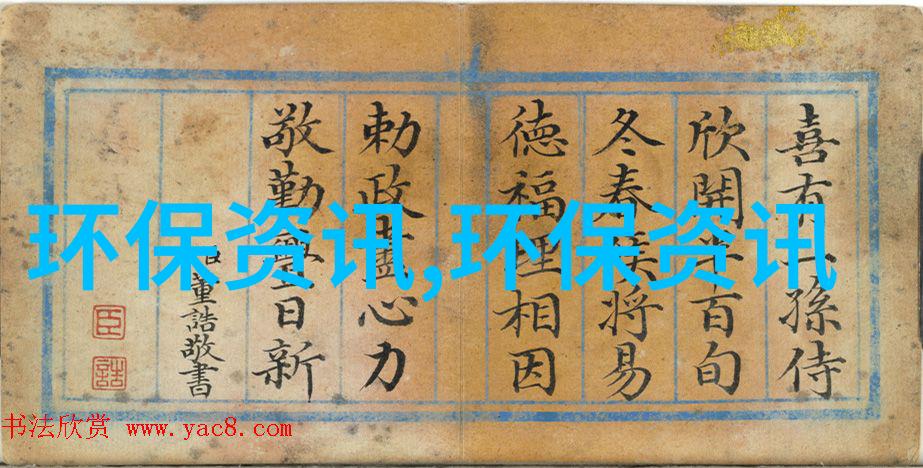 环保资讯,环保资讯
喜有一孫侍
欣開半百旬
冬春候將易
徳福理相因
勅政盡心力
敬勤日新
臣董誥敬書
臣
誥
书法欣赏 www.yac8.com